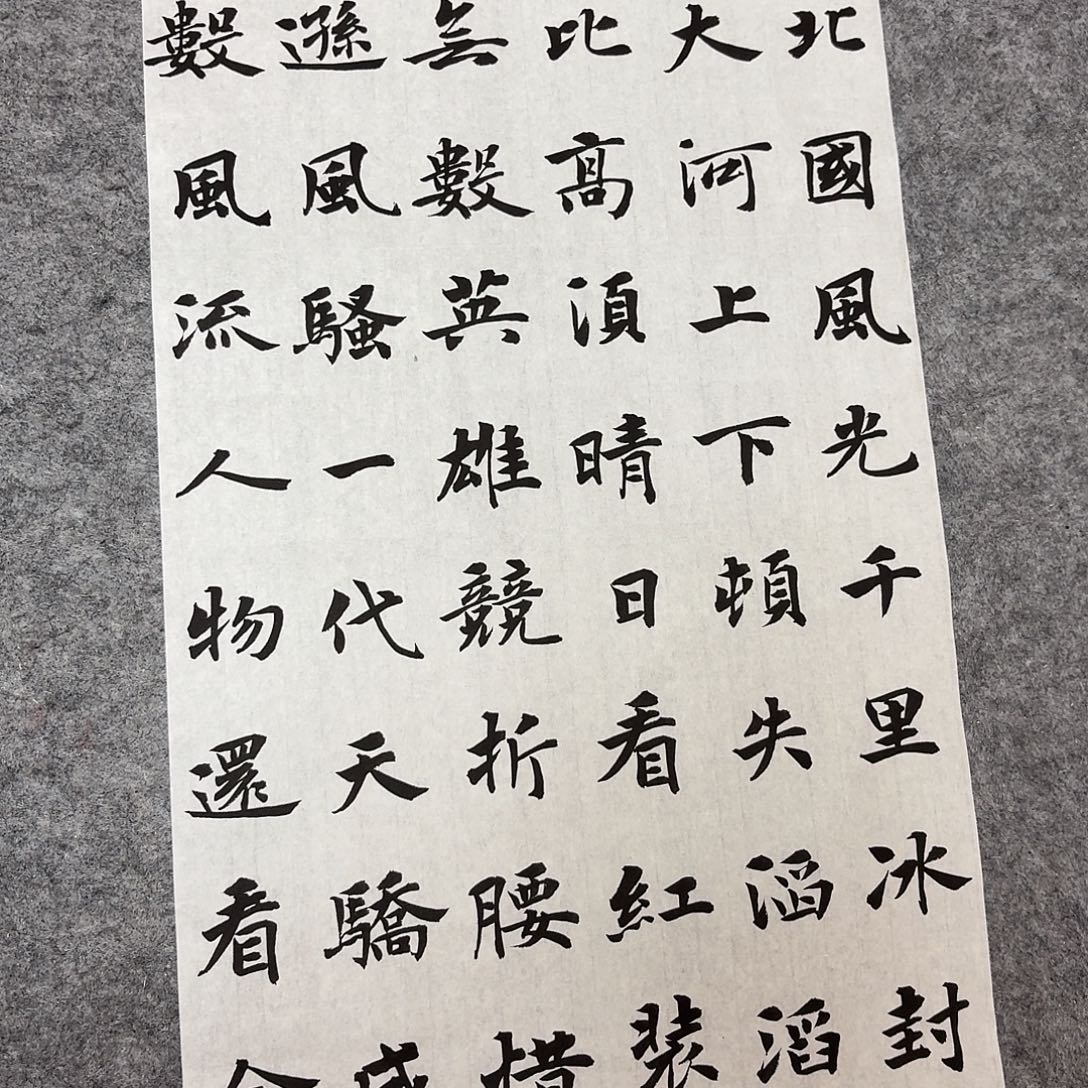 北國風光千里冰封
大河上下頓失滔滔
比高須晴日看紅裝
無數英雄競折腰惜
遜風騷一代天驕成
數風流人物還看今